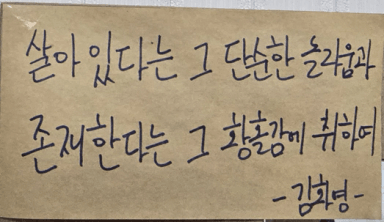 살아 있다는 그 단순한 놀라움과
존재한다는 그 황홀감에 취하여
-김화영-